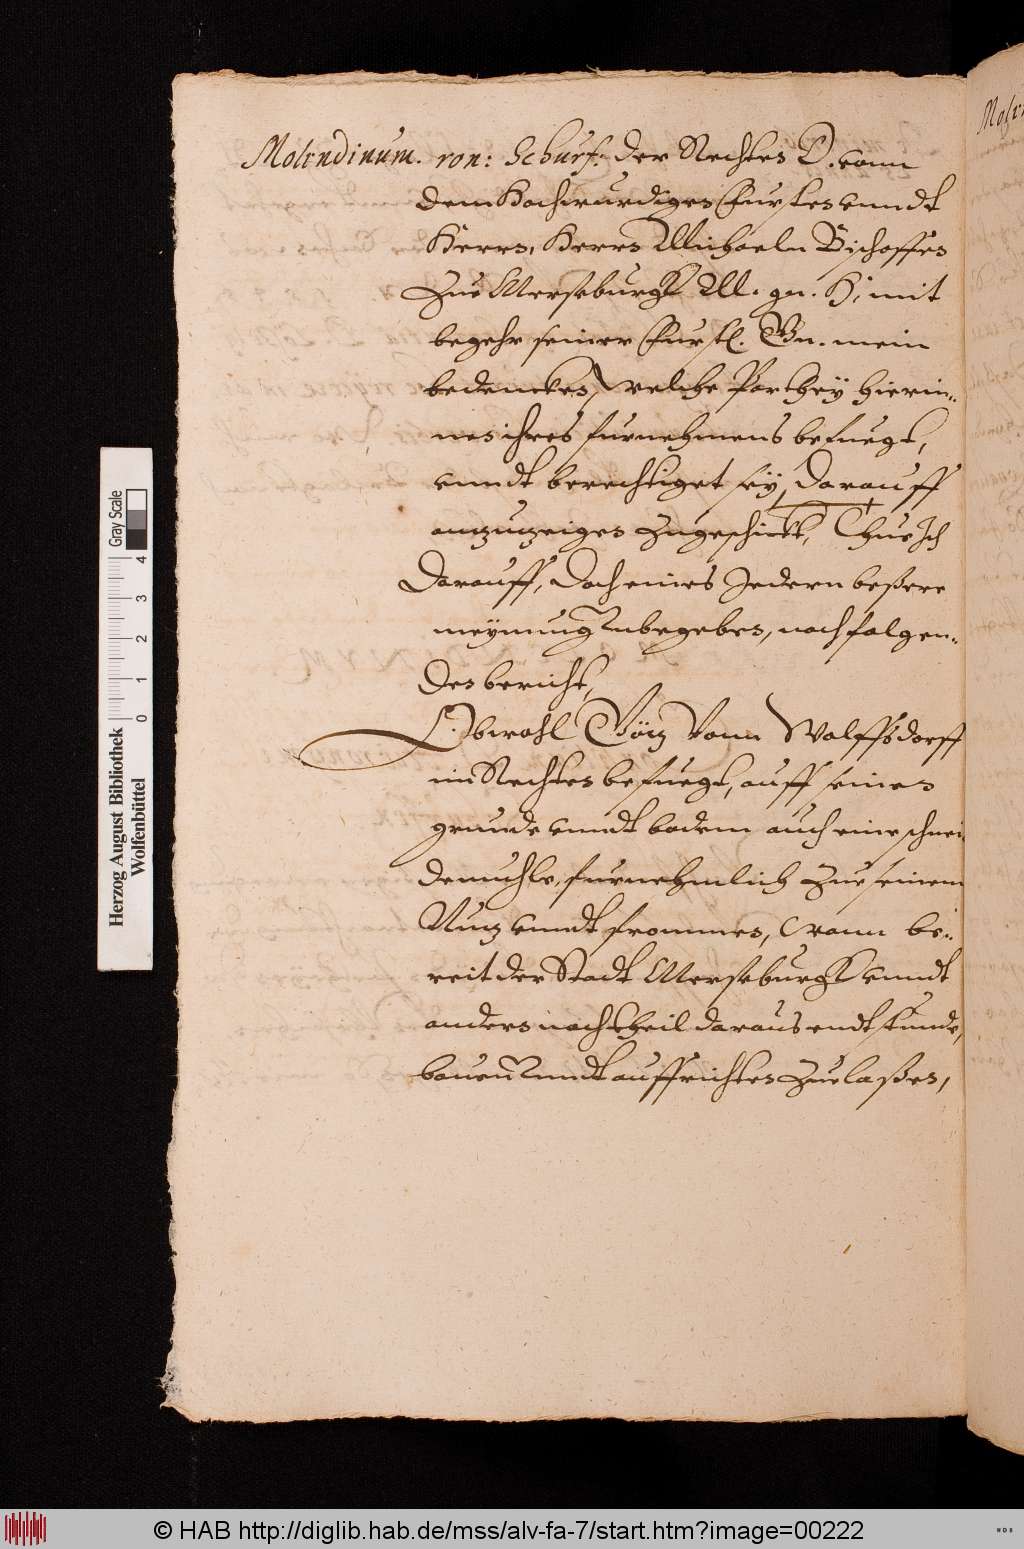 Molendinum. ron: Schurf: der Rechten D. vonn
dem Hochwurdigen Fursten vnndt
Herrn, Herrn Michaeln Bischoffen
Zue Merseburgk M. gn. H, mit
begehr seiner Furstl. Gn. mein
bedencken, welche Parthey hierin-
nen ihres furnehmens befuegt,
vnndt berechtiget sey, darauff
antzuzeigen zugeschickt, Thue Ich
darauff, doch eines Jedern beßere
meynung Zubegeben, nachfolgen-
den bericht,
Obwohl Götz Vonn Wolffsdorff
im Rechten befuegt, auff seinen
grunde vnndt bodem auch eine schnei
demuhle, furnehmlich Zue seinem
Nutz vnndt frommen, Wann be-
reit der Stadt Merseburgk vnndt
andern nachtheil daraus endtstunde,
bauen Vnndt auffrichten Zuelaßen,
Mole
Herzog August Bibliothek
Wolfenbüttel
0 1 2 3 4
Gray Scale
© HAB http://diglib.hab.de/mss/alv-fa-7/start.htm?image=00222